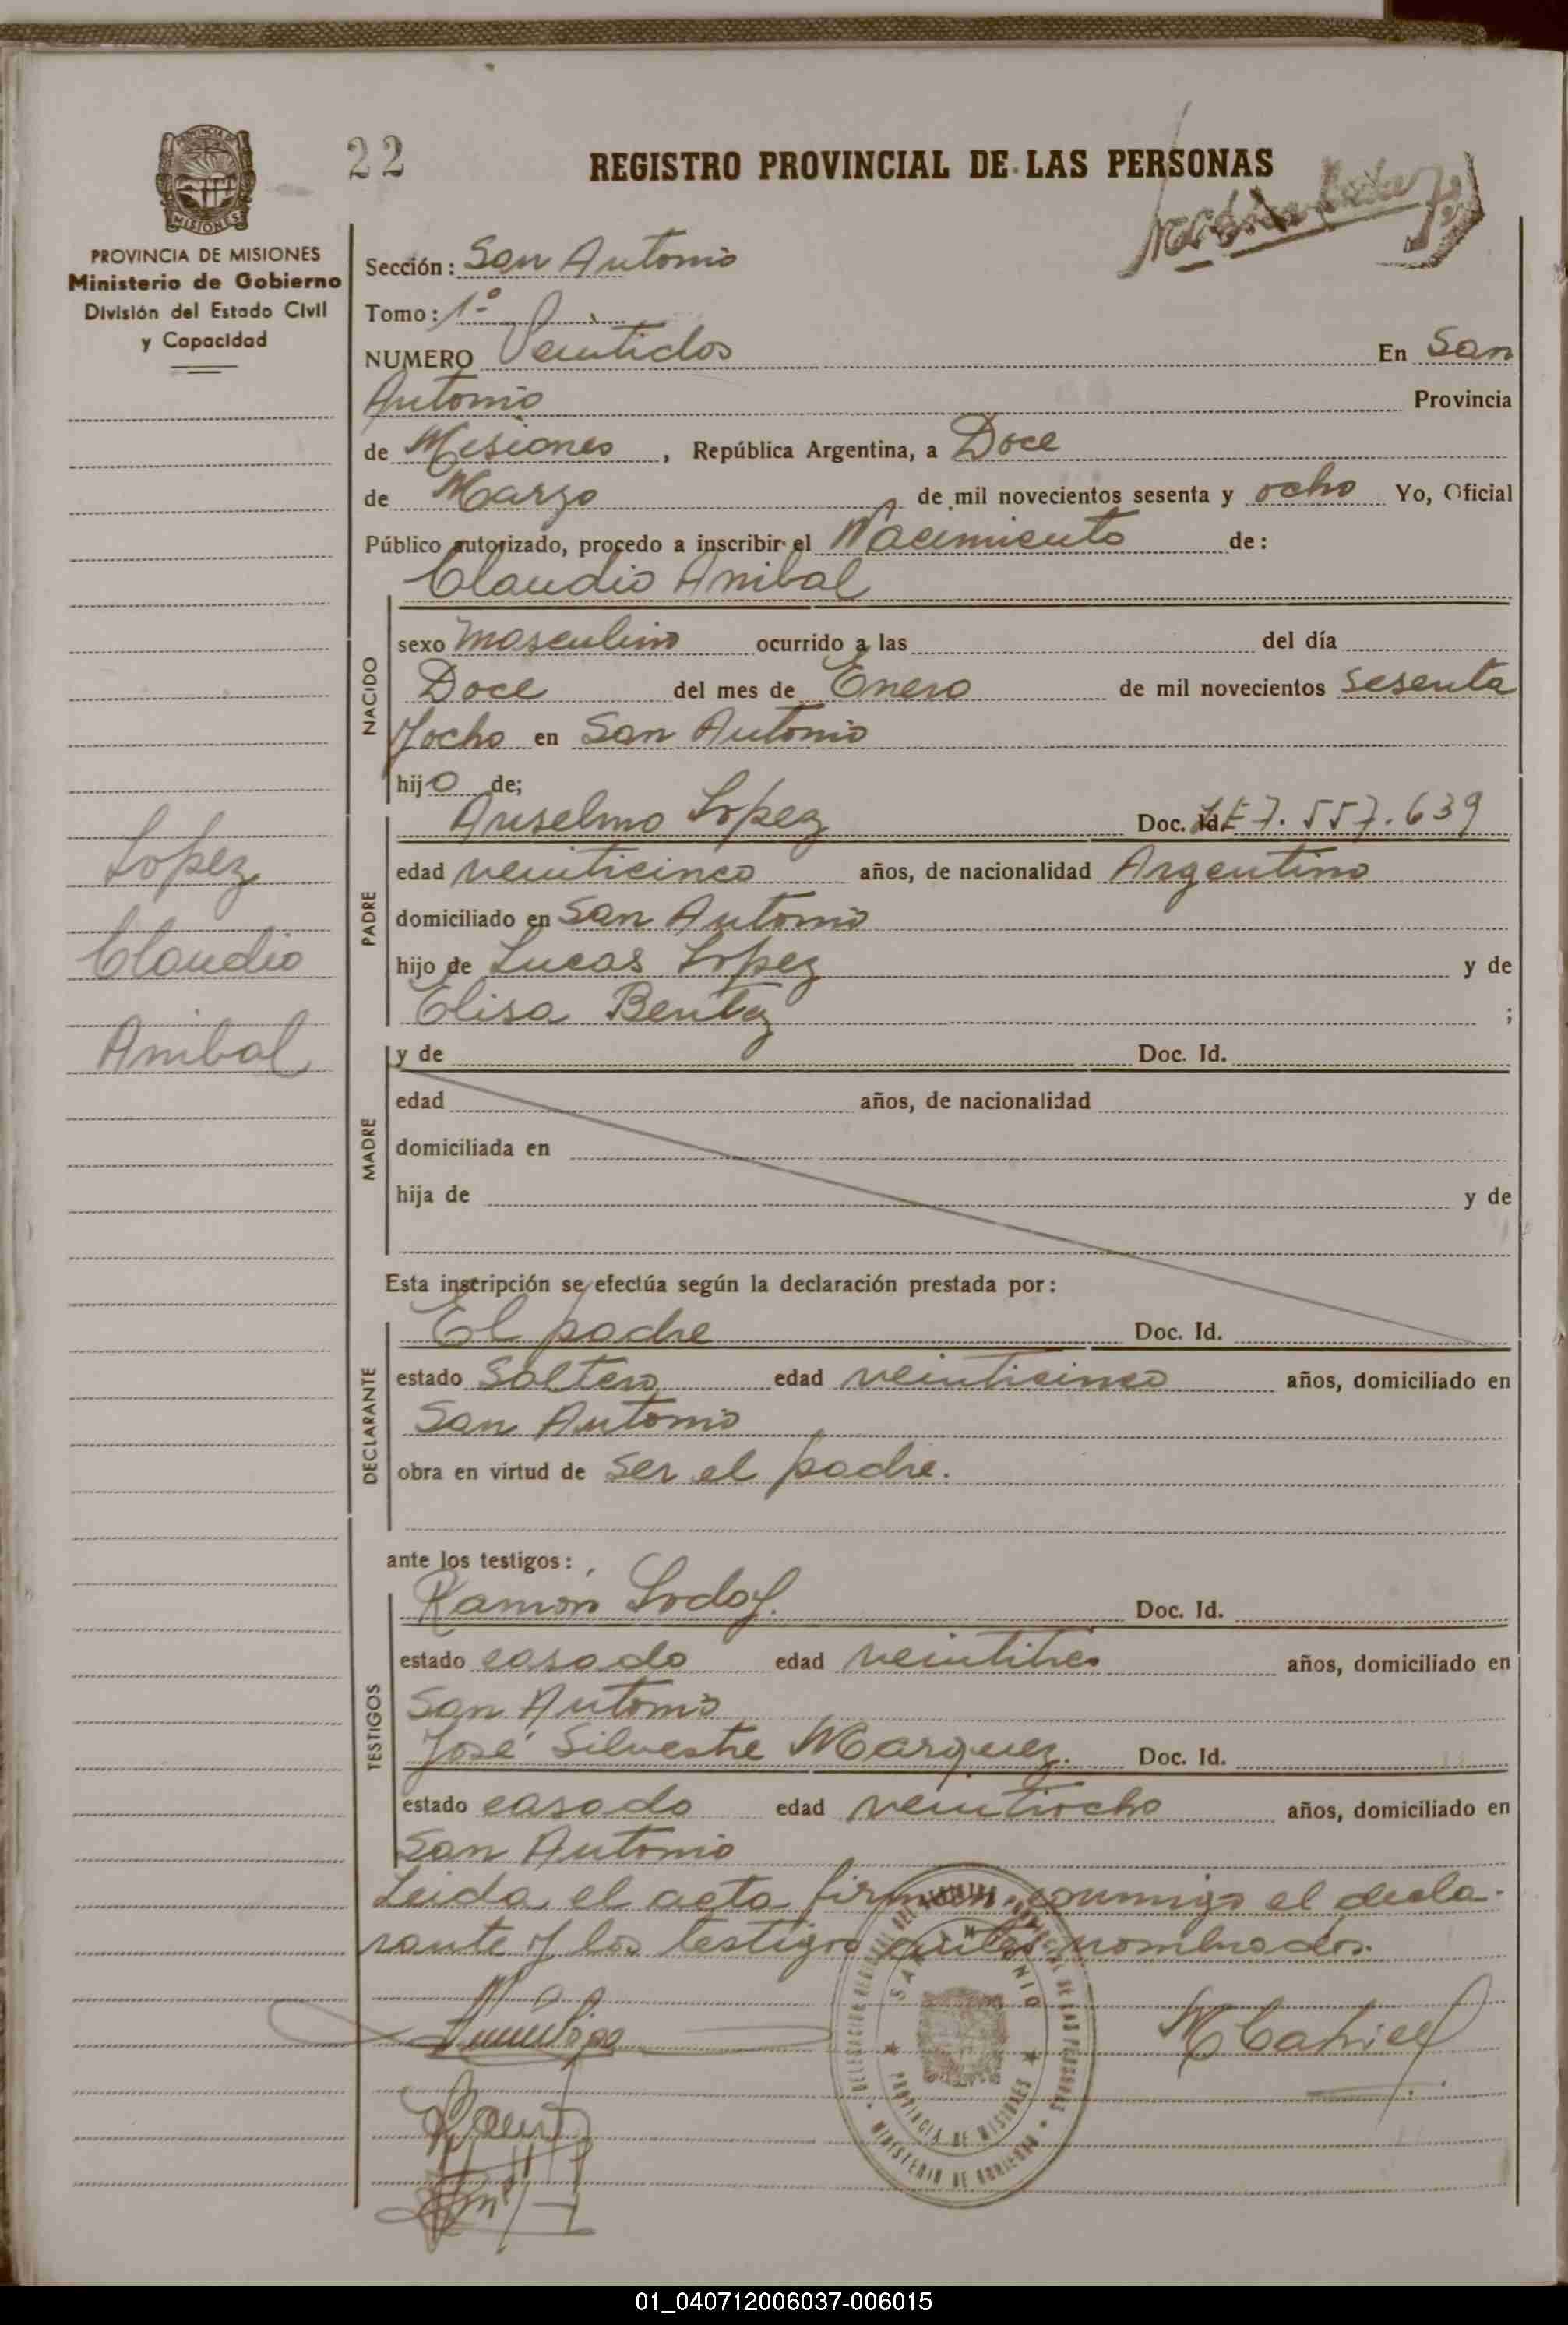 22
REGISTRO PROVINCIAL DE LAS PERSONAS
PROVINCIA DE MISIONES
Ministerio de Gobierno
División del Estado Civil
y Capacidad
Sección: San Antonio
Tomo: 1º
NUMERO Veintidos En San
Antonio Provincia
de Misiones, República Argentina, a Doce
de Marzo de mil novecientos sesenta y ocho Yo, Oficial
Público autorizado, procedo a inscribir el Nacimiento de:
Claudio Anibal
NACIDO
sexo masculino ocurrido a las del día
Doce del mes de Enero de mil novecientos sesenta
y ocho en San Antonio
hijo de;
PADRE
Anselmo Lopez Doc. Id. LE 7.557.639
edad veinticinco años, de nacionalidad Argentino
domiciliado en San Antonio
hijo de Lucas Lopez y de
Elisa Benitez ;
Lopez
Claudio
Anibal
MADRE
y de Doc. Id.
edad años, de nacionalidad
domiciliada en
hija de y de
Esta inscripción se efectúa según la declaración prestada por:
DECLARANTE
El padre Doc. Id.
estado Soltero edad veinticinco años, domiciliado en
San Antonio
obra en virtud de ser el padre.
ante los testigos:
TESTIGOS
Ramón Doc. Id.
estado casado edad veintitres años, domiciliado en
San Antonio
José Silvestre Marquez. Doc. Id.
estado casado edad veintiocho años, domiciliado en
San Antonio
Leida el acta firman conmigo el decla-
rante y los testigos antes nombrados.
SAN ANTONIO
PROVINCIA DE MISIONES
MINISTERIO DE GOBIERNO
01_040712006037-006015